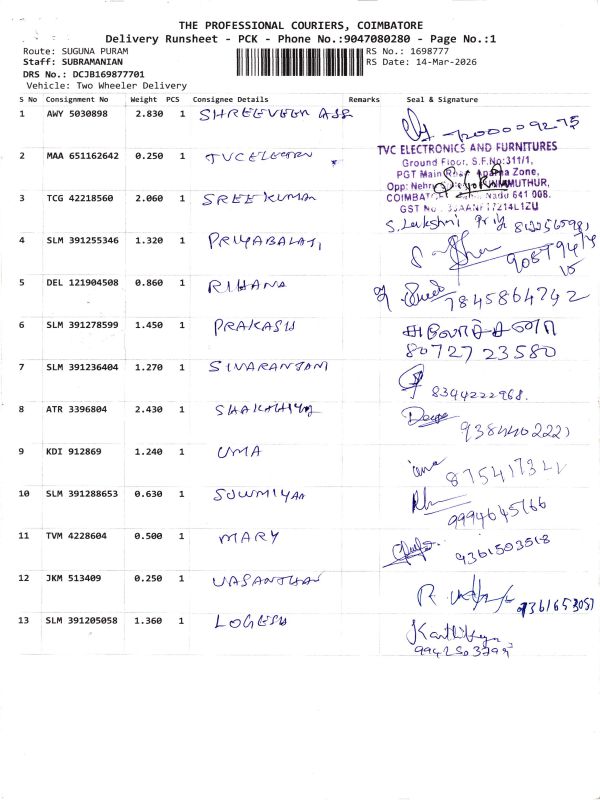 THE PROFESSIONAL COURIERS, COIMBATORE
Delivery Runsheet - PCK - Phone No.:9047080280 - Page No.:1
Route: SUGUNA PURAM RS No.: 1698777
Staff: SUBRAMANIAN RS Date: 14-Mar-2026
DRS No.: DCJB169877701
Vehicle: Two Wheeler Delivery
S No Consignment No Weight PCS Consignee Details Remarks Seal & Signature
1 AWY 5030898 2.830 1 SHREEVEEN
2 MAA 651162642 0.250 1 TVC ELECTRN
TVC ELECTRONICS AND FURNITURES
Ground Floor, S.F.No:311/1,
PGT Main Zone,
Opp: Nehru
COIMBAT Nadu 641 008.
GST No.
3 TCG 42218560 2.060 1 SREEKUMAR S. Lakshmi Priya
4 SLM 391255346 1.320 1 PRIYABALAJI
5 DEL 121904508 0.860 1 RIHANA 7845864742
6 SLM 391278599 1.450 1 PRAKASH
80727 23580
7 SLM 391236404 1.270 1 SIVARANJANI 8344222968.
8 ATR 3396804 2.430 1
9 KDI 912869 1.240 1 UMA
10 SLM 391288653 0.630 1 SOWMIYAA 9994645766
11 TVM 4228604 0.500 1 MARY 9361503518
12 JKM 513409 0.250 1 VASANTHAN 9361653057
13 SLM 391205058 1.360 1 LOGESH Karthikeya